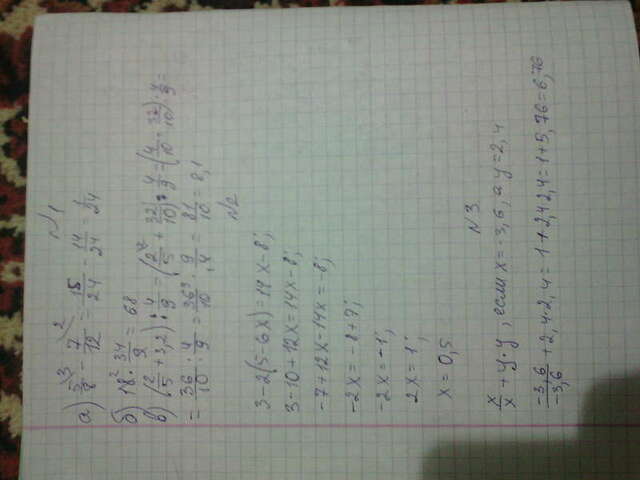 №1
а) 5³/8 - 7²/12 = 15/24 - 14/24 = 1/24
б) 18² · 34/9 = 68
в) (2/5 + 3,2) : 4/9 = (2²/5 + 32/10) : 4/9 = (4/10 + 32/10) : 4/9 =
= 36/10 : 4/9 = 36⁹/10 · 9/4 = 81/10 = 8,1
№2
3-2(5-6x)=14x-8;
3-10-12x=14x-8;
-7+12x=14x=-8;
-2x=-8+7;
-2x=-1;
2x=1;
x=0,5.
№3.
x/x + y·y, если x=-3,6, а y=2,4
-3,6/-3,6 + 2,4·2,4=1+2,4·2,4=1+5,76=6,76